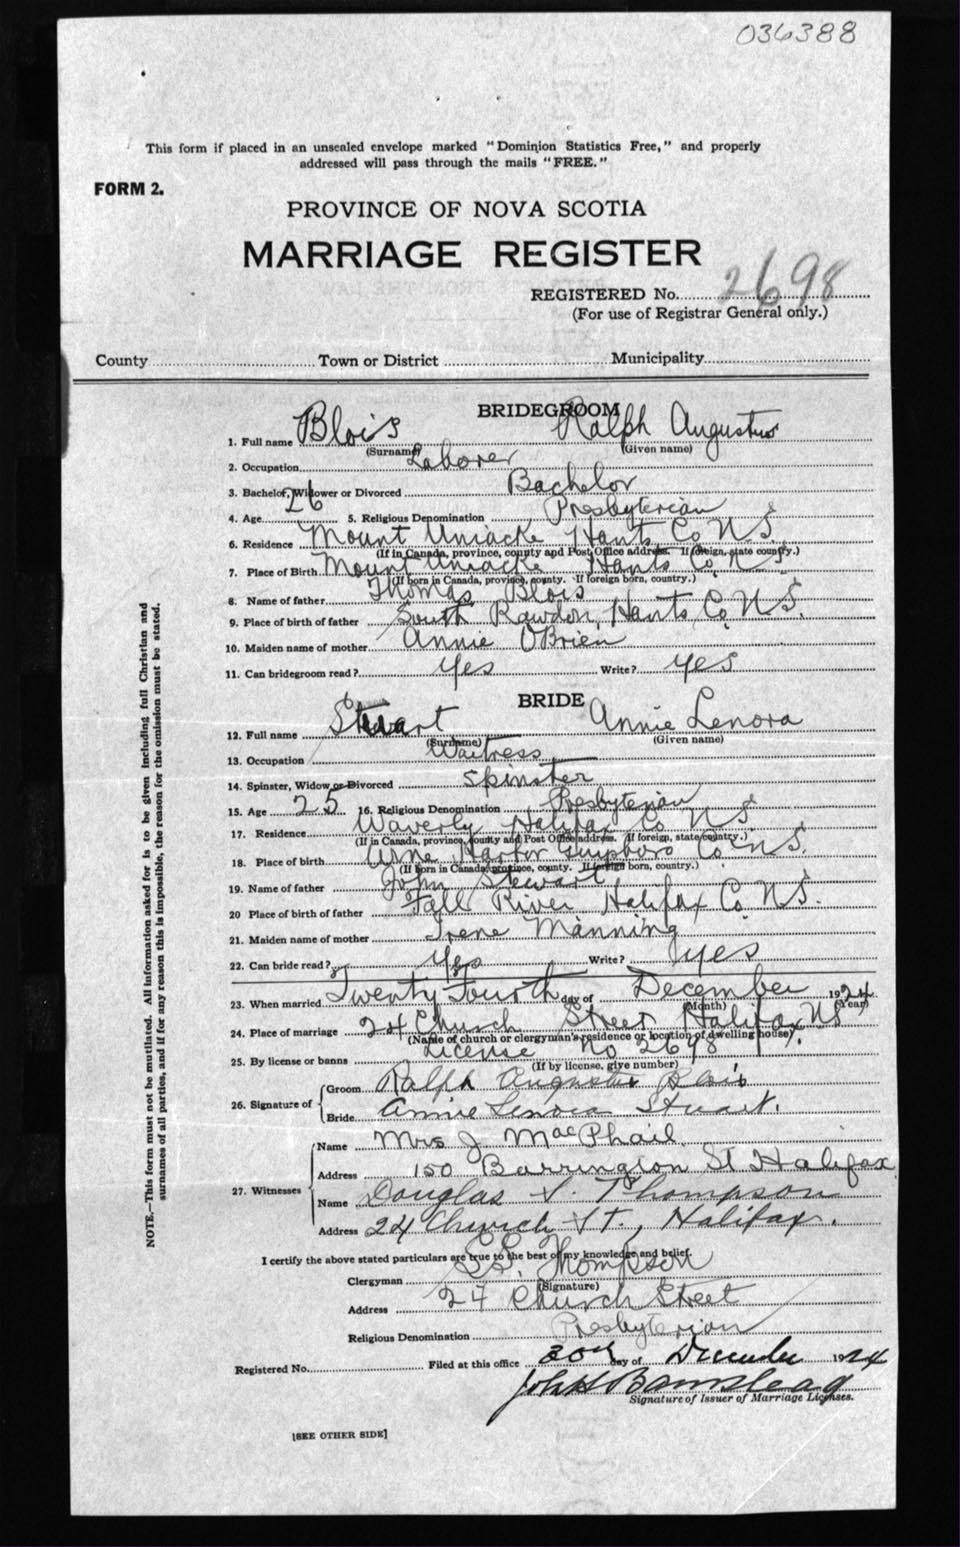 036388
This form if placed in an unsealed envelope marked "Dominion Statistics Free," and properly
addressed will pass through the mails "FREE."
FORM 2.
PROVINCE OF NOVA SCOTIA
MARRIAGE REGISTER
REGISTERED No. 2698
(For use of Registrar General only.)
County Town or District Municipality
BRIDEGROOM
1. Full name Blois Ralph Augustus
(Surname) (Given name)
2. Occupation Laborer
3. Bachelor, Widower or Divorced Bachelor
4. Age 26 5. Religious Denomination Presbyterian
6. Residence Mount Uniacke Hants Co N.S.
(If in Canada, province, county and Post Office address. If foreign, state country.)
7. Place of Birth Mount Uniacke Hants Co N.S.
(If born in Canada, province, county. If foreign born, country.)
8. Name of father Thomas Blois
9. Place of birth of father South Rawdon, Hants Co N.S.
10. Maiden name of mother Annie OBrien
11. Can bridegroom read? Yes Write? Yes
BRIDE
12. Full name Stuart Annie Lenora
(Surname) (Given name)
13. Occupation Waitress
14. Spinster, Widow or Divorced Spinster
15. Age 25 16. Religious Denomination Presbyterian
17. Residence Waverly Halifax Co N.S.
(If in Canada, province, county and Post Office address. If foreign, state country.)
18. Place of birth Harbor Co N.S.
(If born in Canada, province, county. If foreign born, country.)
19. Name of father John Stewart
20 Place of birth of father Fall River Halifax Co N.S.
21. Maiden name of mother Irene Manning
22. Can bride read? Yes Write? Yes
23. When married Twenty Fourth day of December 1924
(Month) (Year)
24. Place of marriage 24 Church Street Halifax N.S.
(Name of church or clergyman's residence or location of dwelling house)
25. By license or banns License No 2698
(If by license, give number)
26. Signature of Groom Ralph Augustus Blois
Bride Annie Lenora Stuart.
27. Witnesses Name Mrs J. MacPhail
Address 150 Barrington St Halifax
Name Douglas S. Thompson
Address 24 Church St., Halifax.
I certify the above stated particulars are true to the best of my knowledge and belief.
Clergyman Thompson
(Signature)
Address 24 Church Street
Religious Denomination Presbyterian
Registered No. Filed at this office 30th day of December 1924
John H Barnstead
Signature of Issuer of Marriage Licenses.
[SEE OTHER SIDE]
NOTE.—This form must not be mutilated. All information asked for is to be given including full Christian and
surnames of all parties, and if for any reason this is impossible, the reason for the omission must be stated.